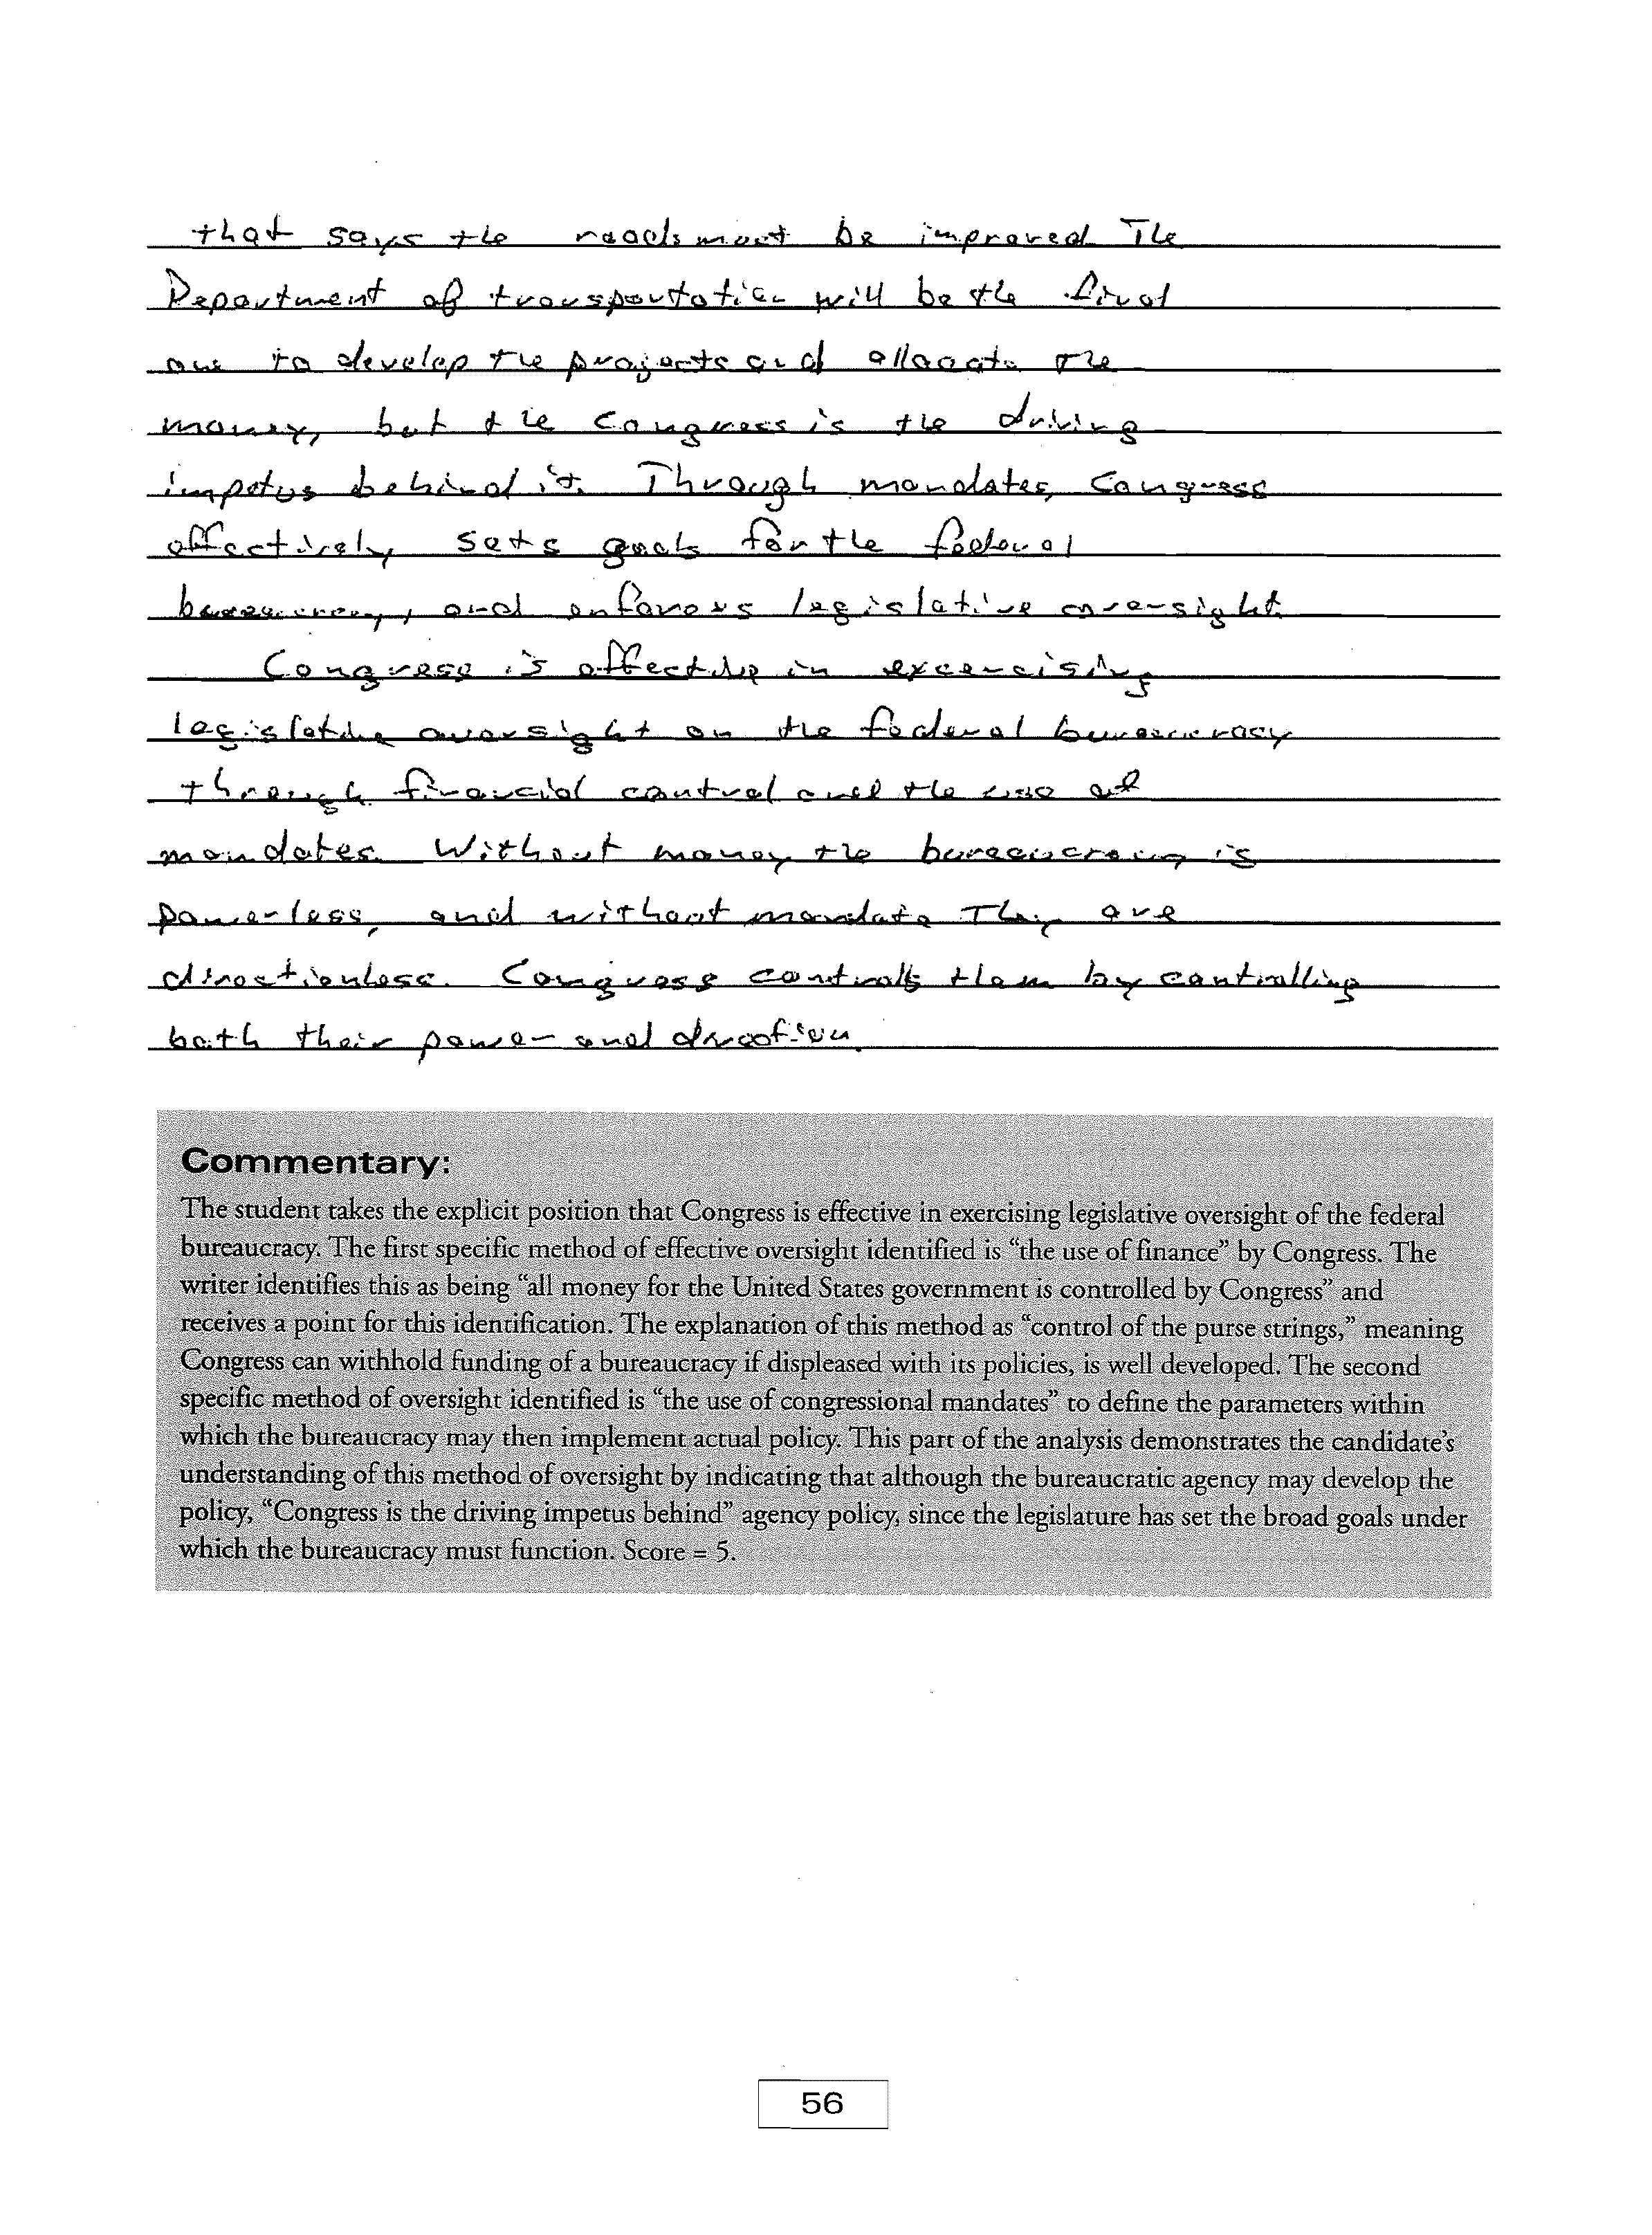 that says the roads must be improved The
Department of transportation will be the final
one to develop the projects and allocate the
money, but the Congress is the driving
impetus behind it. Through mandates, Congress
effectively sets goals for the federal
bureaucracy, and enforces legislative oversight.
Congress is effective in excercising
legislative oversight on the federal bureaucracy
through financial control and the use of
mandates. Without money the bureaucracy is
powerless, and without mandate They are
directionless. Congress controls them by controlling
both their power and direction.
Commentary:
The student takes the explicit position that Congress is effective in exercising legislative oversight of the federal
bureaucracy. The first specific method of effective oversight identified is “the use of finance” by Congress. The
writer identifies this as being “all money for the United States government is controlled by Congress” and
receives a point for this identification. The explanation of this method as “control of the purse strings,” meaning
Congress can withhold funding of a bureaucracy if displeased with its policies, is well developed. The second
specific method of oversight identified is “the use of congressional mandates” to define the parameters within
which the bureaucracy may then implement actual policy. This part of the analysis demonstrates the candidate’s
understanding of this method of oversight by indicating that although the bureaucratic agency may develop the
policy, “Congress is the driving impetus behind” agency policy, since the legislature has set the broad goals under
which the bureaucracy must function. Score = 5.
56